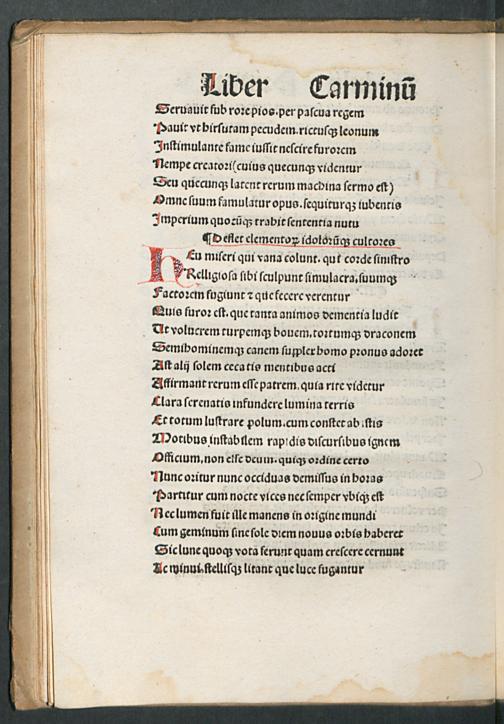 Liber Carminū
Seruauit sub rore pios. per pascua regem
Pauit vt hirsutam pecudem. rictusqꝫ leonum
Instimulante fame iussit nescire furorem
Nempe creatori (cuius quecunqꝫ videntur
Seu quecunqꝫ latent rerum machina sermo est)
Omne suum famulatur opus. sequiturqꝫ iubentis
Imperium quorūqꝫ trahit sententia nutu
¶ Deflet elementoꝝ idolorūqꝫ cultores
HEu miseri qui vana colunt. qui corde sinistro
Relligiosa sibi sculpunt simulacra, suumqꝫ
Factorem fugiunt ⁊ que fecere verentur
Quis furor est. que tanta animos dementia ludit
Ut volucrem turpemqꝫ bouem. tortumqꝫ draconem
Semihominemqꝫ canem supplex homo pronus adoret
Ast alij solem cecatis mentibus acti
Affirmant rerum esse patrem. quia rite videtur
Clara serenatis infundere lumina terris
Et totum lustrare polum. cum constet ab istis
Motibus instabilem rapidis discursibus ignem
Officium. non esse deum. quiqꝫ ordine certo
Nunc oritur nunc occiduas demissus in horas
Partitur cum nocte vices nec semper vbiqꝫ est
Nec lumen fuit ille manens in origine mundi
Cum geminum sine sole diem nouus orbis haberet
Sic lune quoqꝫ vota ferunt quam crescere cernunt
Ac minui. stellisqꝫ litant que luce fugantur